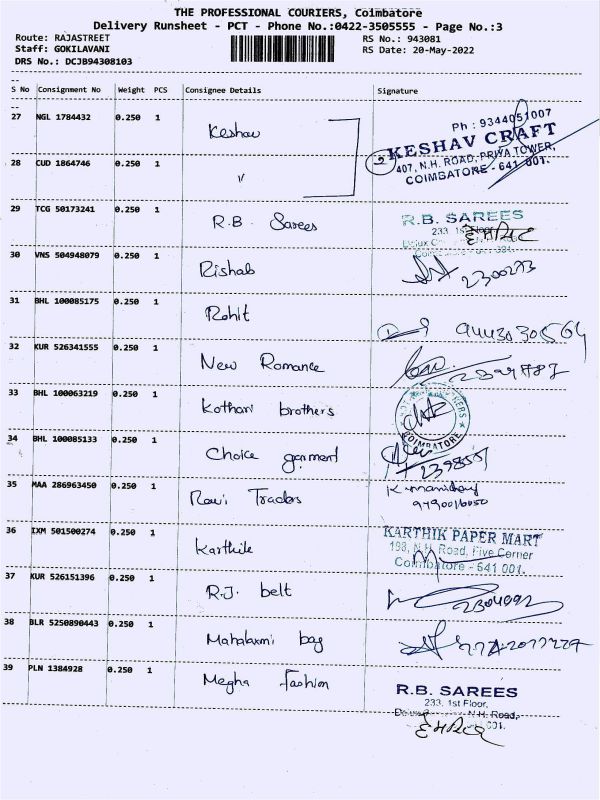 THE PROFESSIONAL COURIERS, Coimbatore
Delivery Runsheet - PCT - Phone No.:0422-3505555 - Page No.:3
Route: RAJASTREET
RS No.: 943081
Staff: GOKILAVANI
RS Date: 20-May-2022
DRS No.: DCJB94308103
S No Consignment No Weight PCS Consignee Details Signature
27 NGL 1784432 0.250 1 Keshav
Ph : 9344051007
KESHAV CRAFT
407, N.H. ROAD, PRIYA TOWER,
COIMBATORE - 641 001.
28 CUD 1864746 0.250 1 "
29 TCG 50173241 0.250 1 R.B. Sarees
R.B. SAREES
233, 1st Floor,
30 VNS 504948079 0.250 1 Rishab
2300273
31 BHL 100085175 0.250 1 Rohit
32 KUR 526341555 0.250 1 New Romance
33 BHL 100063219 0.250 1 Kothari brothers
BROTHERS
COIMBATORE
34 BHL 100085133 0.250 1 Choice garment
35 MAA 286963450 0.250 1 Ravi Traders
36 IXM 501500274 0.250 1 Karthik
KARTHIK PAPER MART
198, N.H. Road, Five Corner
Coimbatore - 641 001.
37 KUR 526151396 0.250 1 R.J. belt
2304092
38 BLR 5250890443 0.250 1 Mahalaxmi bag
39 PLN 1384928 0.250 1 Megha fashion
R.B. SAREES
233, 1st Floor,
N.H. Road,